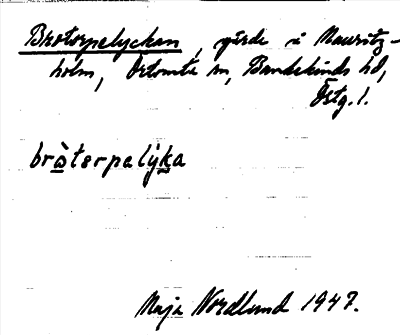 Brotorpelyckan, gärde i Mauritz-
holm, Örtomta sn, Bankekinds hd,
Östg. l.
bròterpalýka
Maja Nordlund 1947.